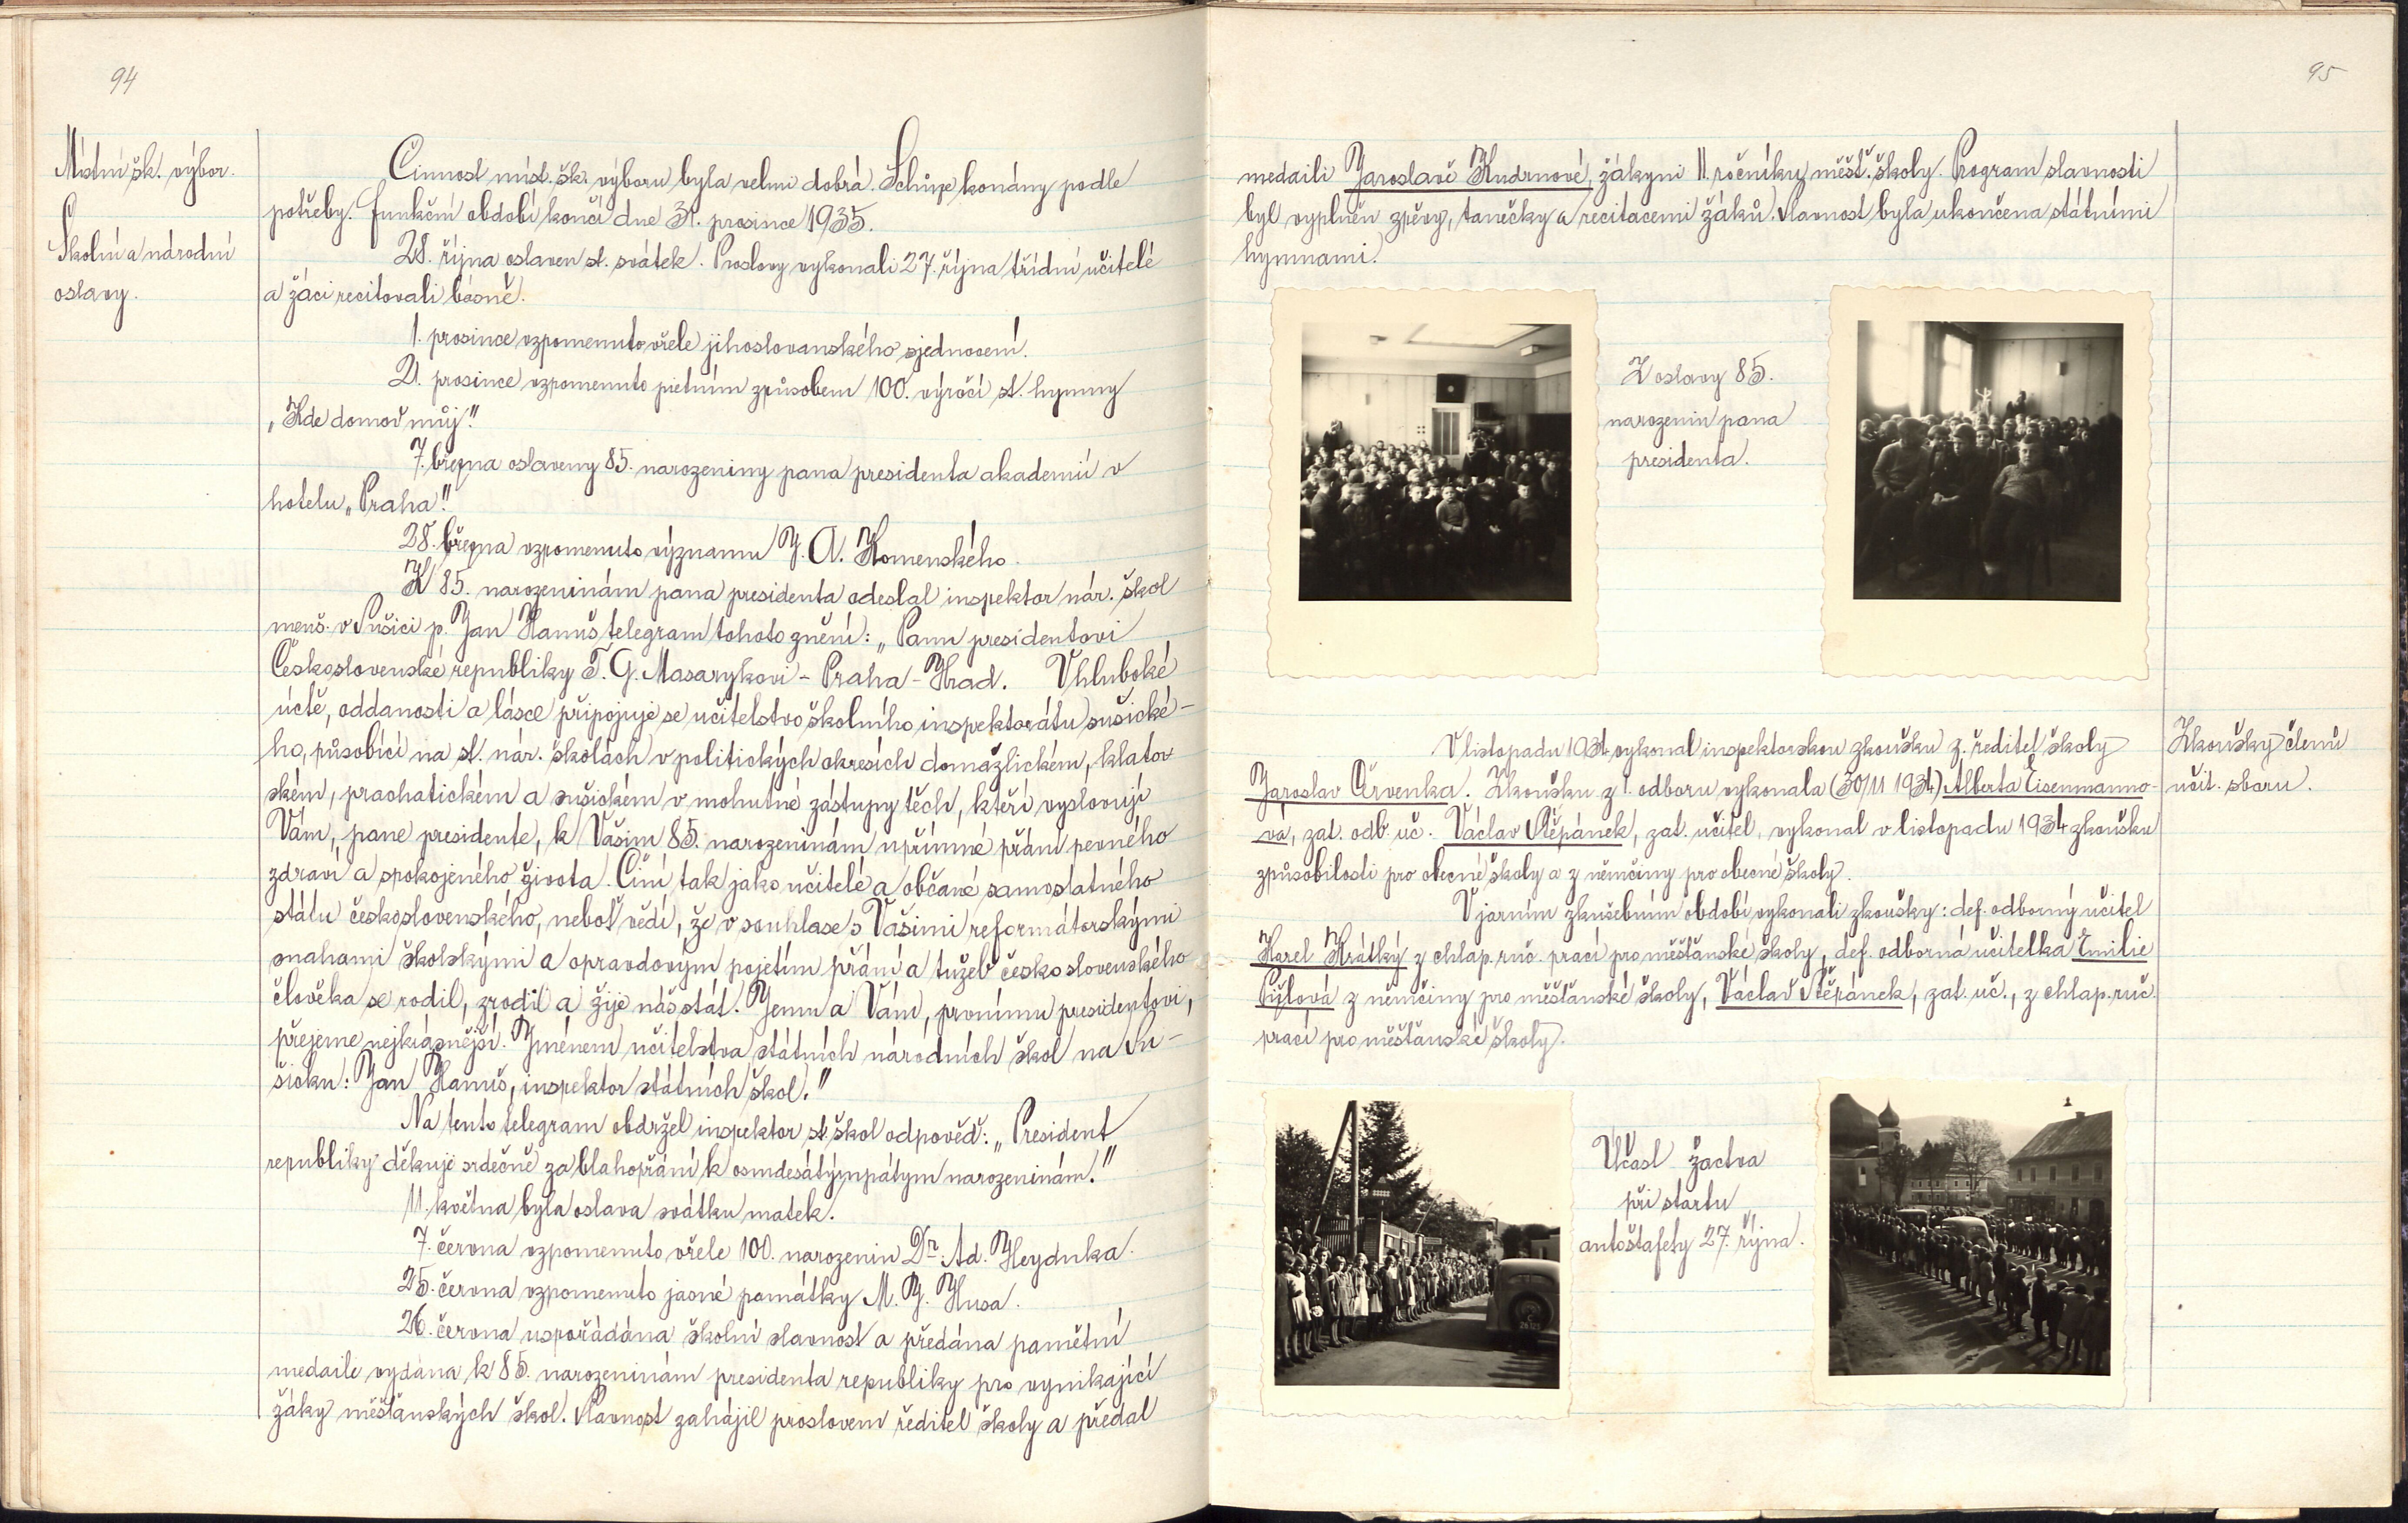 94
Místní šk. výbor.
Činnost míst. šk. výboru byla velmi dobrá. Schůze konány podle
potřeby. Funkční období končí dne 31. prosince 1935.
Školní a národní
oslavy.
28. října oslaven st. svátek. Proslovy vykonali 27. října třídní učitelé
a žáci recitovali básně.
1. prosince vzpomenuto vřele jihoslovanského sjednocení.
21. prosince vzpomenuto pietním způsobem 100. výročí st. hymny
„Kde domov můj".
7. března oslaveny 85. narozeniny pana presidenta akademií v
hotelu „Praha".
28. března vzpomenuto významu J. A. Komenského.
K 85. narozeninám pana presidenta odeslal inspektor nár. škol
menš. v Sušici p. Jan Hamuš telegram tohoto znění: „Panu presidentovi
Československé republiky T. G. Masarykovi - Praha - Hrad. V hluboké
úctě, oddanosti a lásce připojuje se učitelstvo školního inspektorátu sušické-
ho, působící na st. nár. školách v politických okresích domažlickém, klatov
ském, prachatickém a sušickém v mohutné zástupy těch, kteří vyslovují
Vám, pane presidente, k Vašim 85. narozeninám upřímné přání pevného
zdraví a spokojeného života. Činí tak jako učitelé a občané samostatného
státu československého, neboť vědí, že v souhlase s Vašimi reformátorskými
snahami školskými a opravdovým pojetím přání a tužeb československého
člověka se rodil, zrodil a žije náš stát. Jemu a Vám, prvnímu presidentovi,
přejeme nejkrásnější. Jménem učitelstva státních národních škol na Su-
šicku: Jan Hamuš, inspektor státních škol."
Na tento telegram obdržel inspektor st. škol odpověď: „President
republiky děkuje srdečně za blahopřání k osmdesátýmpátým narozeninám."
11. května byla oslava svátku matek.
7. června vzpomenuto vřele 100. narozenin Dr. Ad. Heyduka.
25. června vzpomenuto jasné památky M. J. Husa.
26. června uspořádána školní slavnost a předána pamětní
medaile vydaná k 85. narozeninám presidenta republiky pro vynikající
žáky měšťanských škol. Slavnost zahájil proslovem ředitel školy a předal
95
medaili Jaroslavě Kudrnové, žákyni II. ročníku měšť. školy. Program slavnosti
byl vyplněn zpěvy, tanečky a recitacemi žáků. Slavnost byla ukončena státními
hymnami.
Z oslavy 85.
narozenin pana
presidenta.
V listopadu 1934 vykonal inspektorskou zkoušku z. ředitel školy
Jaroslav Červenka. Zkoušku z I. odboru vykonala (30/11 1934) Alberta Eisenmanno-
vá, zat. odb. uč. Václav Štěpánek, zat. učitel, vykonal v listopadu 1934 zkoušku
způsobilosti pro obecné školy a z němčiny pro obecné školy.
Zkoušky členů
učit. sboru.
V jarním zkušebním období vykonali zkoušky: def. odborný učitel
Karel Krátký z chlap. ruč. prací pro měšťanské školy, def. odborná učitelka Emilie
Pýtlová z němčiny pro měšťanské školy, Václav Štěpánek, zat. uč., z chlap. ruč.
prací pro měšťanské školy.
Účast žactva
při startu
autoštafety 27. října.